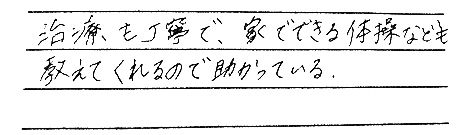 治療も丁寧で、家でできる体操なども
教えてくれるので助かっている.